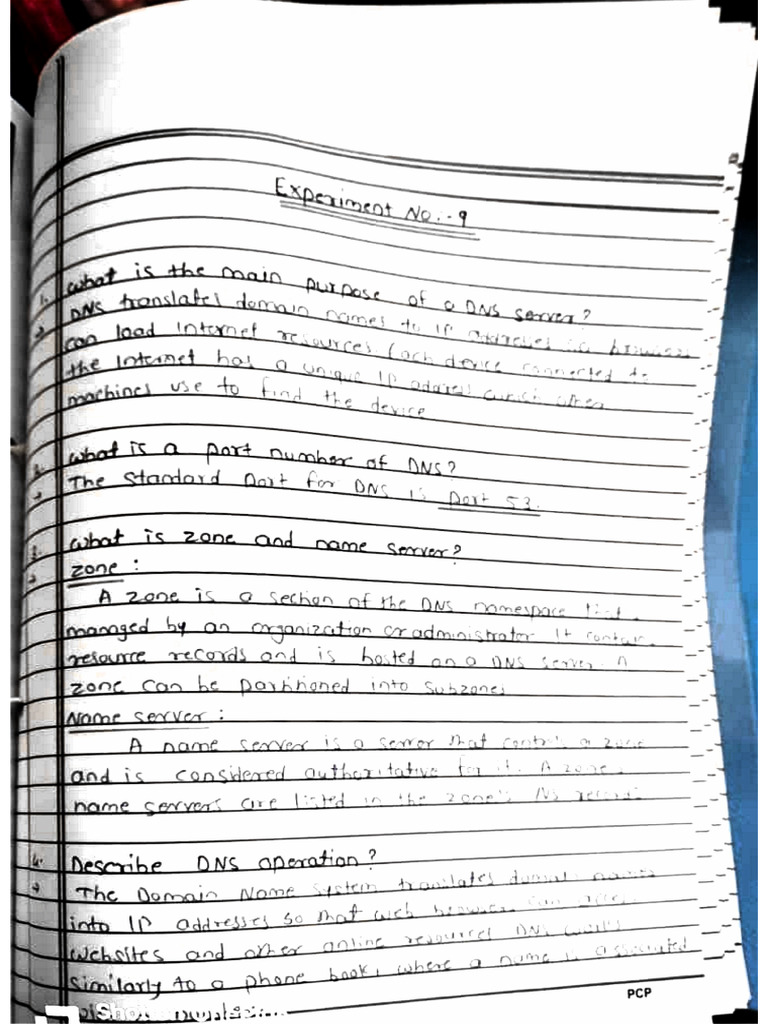 Experiment No:- 9
1. What is the main purpose of a DNS server?
→ DNS translates domain names to IP addresses so browsers
can load Internet resources (each device connected to
the Internet has a unique IP address which other
machines use to find the device
2. What is a port number of DNS?
→ The standard port for DNS is port 53.
3. What is zone and name server?
→ Zone :
A zone is a section of the DNS namespace that
managed by an organization or administrator. It
resource records and is hosted on a DNS server. A
zone can be partitioned into subzones
Name server :
A name server is a server that controls a zone
and is considered authoritative for it. A zone's
name servers are listed in the zone's NS records
4. Describe DNS operation?
→ The Domain Name System translates domain names
into IP addresses so that web browsers can
websites and other online resources DNS works
similarly to a phone book, where a name is associated
PCP